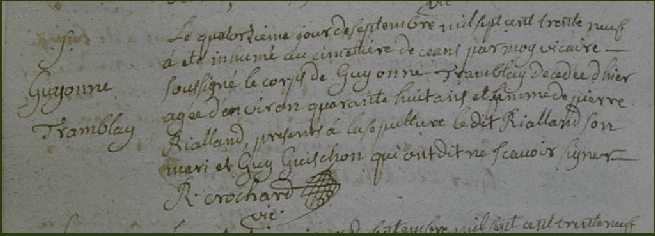 vic
Le quatorzieme jour de septembre mil sept cent trente neuf
a ete inhumé au cimetiere de ceans par moy vicaire
soussigné le corps de Guyonne Tramblay decedée d'hier
agée d'environ quarante huit ans et femme de pierre
Rialland, presents à la sepulture le dit Rialland son
mari et Guy Guischon qui ont dit ne scavoir signer
R. crochard
vic.
S.
Guyonne
Tramblay
septembre mil sept cent trente neuf